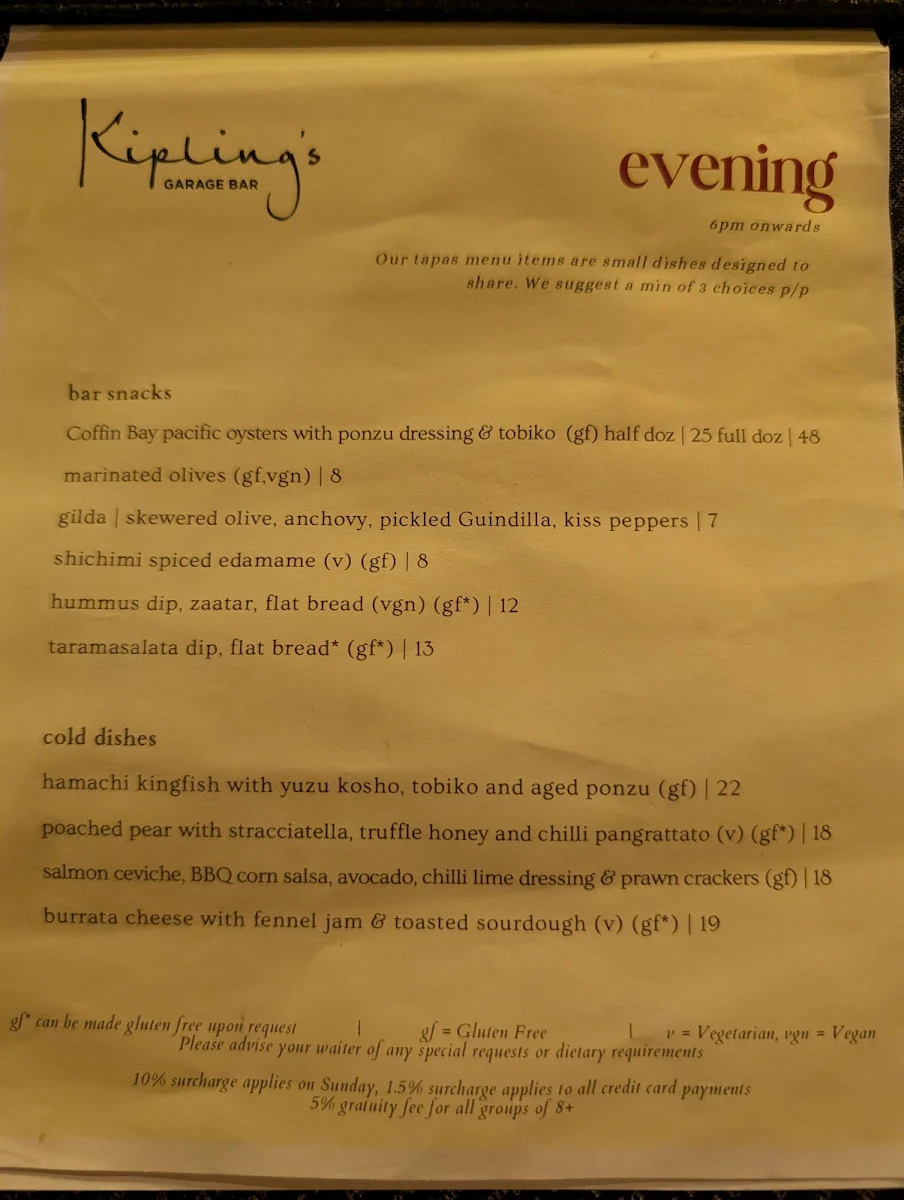 Kipling's
GARAGE BAR
evening
6pm onwards
Our tapas menu items are small dishes designed to
share. We suggest a min of 3 choices p/p
bar snacks
Coffin Bay pacific oysters with ponzu dressing & tobiko (gf) half doz | 25 full doz | 48
marinated olives (gf,vgn) | 8
gilda | skewered olive, anchovy, pickled Guindilla, kiss peppers | 7
shichimi spiced edamame (v) (gf) | 8
hummus dip, zaatar, flat bread (vgn) (gf*) | 12
taramasalata dip, flat bread* (gf*) | 13
cold dishes
hamachi kingfish with yuzu kosho, tobiko and aged ponzu (gf) | 22
poached pear with stracciatella, truffle honey and chilli pangrattato (v) (gf*) | 18
salmon ceviche, BBQ corn salsa, avocado, chilli lime dressing & prawn crackers (gf) | 18
burrata cheese with fennel jam & toasted sourdough (v) (gf*) | 19
gf* can be made gluten free upon request | gf = Gluten Free | v = Vegetarian, vgn = Vegan
Please advise your waiter of any special requests or dietary requirements
10% surcharge applies on Sunday, 1.5% surcharge applies to all credit card payments
5% gratuity fee for all groups of 8+